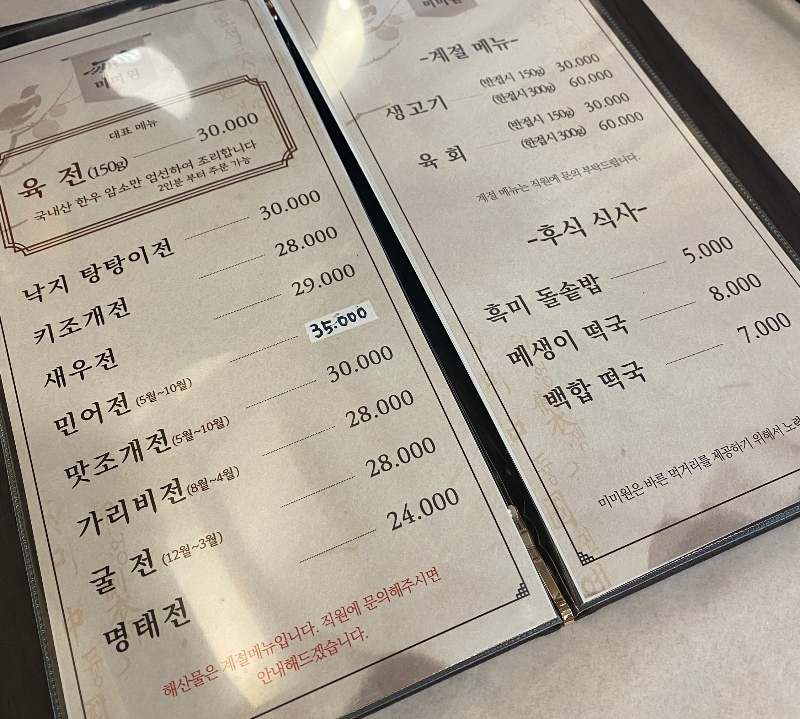 미미원
대표 메뉴
육 전(150g) 30.000
국내산 한우 암소만 엄선하여 조리합니다
2인분 부터 주문 가능
낙지 탕탕이전 30.000
키조개전 28.000
새우전 29.000
민어전 (5월~10월) 35.000
맛조개전(5월~10월) 30.000
가리비전(8월~4월) 28.000
굴 전 (12월~3월) 28.000
명태전 24.000
해산물은 계절메뉴입니다. 직원에 문의해주시면
안내해드겠습니다.
미미원
-계절 메뉴-
생고기 (한접시 150g) 30.000
(한접시 300g) 60.000
육 회 (한접시 150g) 30.000
(한접시 300g) 60.000
계절 메뉴는 직원에 문의 부탁드립니다.
-후식 식사-
흑미 돌솥밥 5.000
메생이 떡국 8.000
백합 떡국 7.000
미미원은 바른 먹거리를 제공하기 위해서